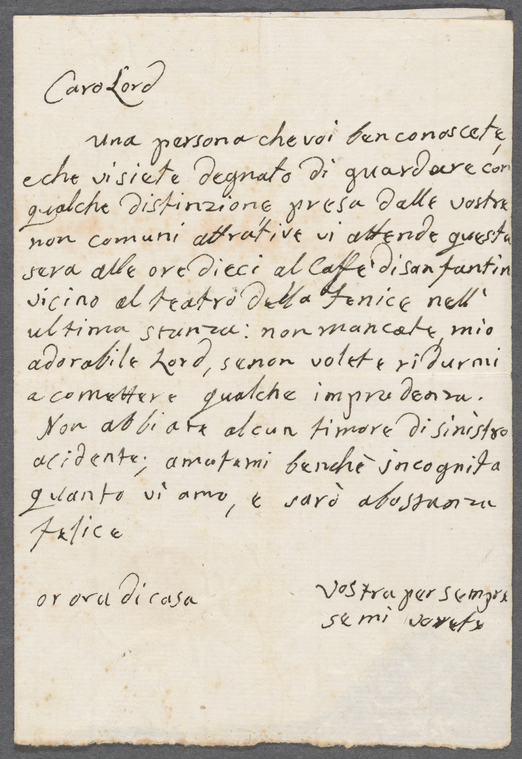 Caro Lord
Una persona che voi ben conoscete,
e che vi siete degnato di guardare con
qualche distinzione presa dalle vostre
non comuni attrative vi attende questa
sera alle ore dieci al Caffè di san fantin
vicino al teatro della fenice nell'
ultima stanza: non mancate, mio
adorabile Lord, se non volete ridurmi
a comettere qualche imprudenza.
Non abbiate alcun timore di sinistro
acidente; amatemi benchè incognita
quanto vi amo, e sarò abostanza
felice
or ora di casa
Vostra per sempre
se mi vorrete